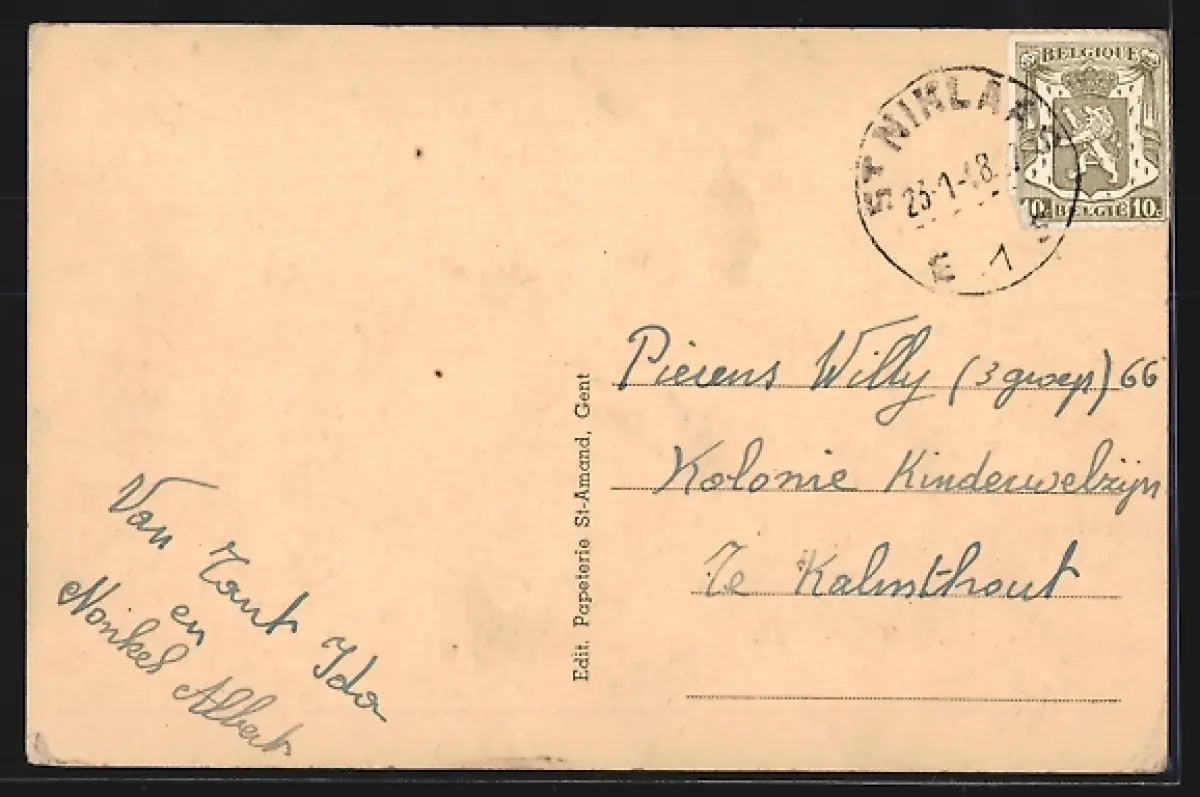 BELGIQUE
10c BELGIË 10c
ST NIKLAA
23-1-48
E 1 E
Pierens Willy (3 groep) 66
Kolonie Kinderwelzijn
Te Kalmthout
Edit. Papeterie St-Amand, Gent
Van Tant Ida
en
Nonkel Albert